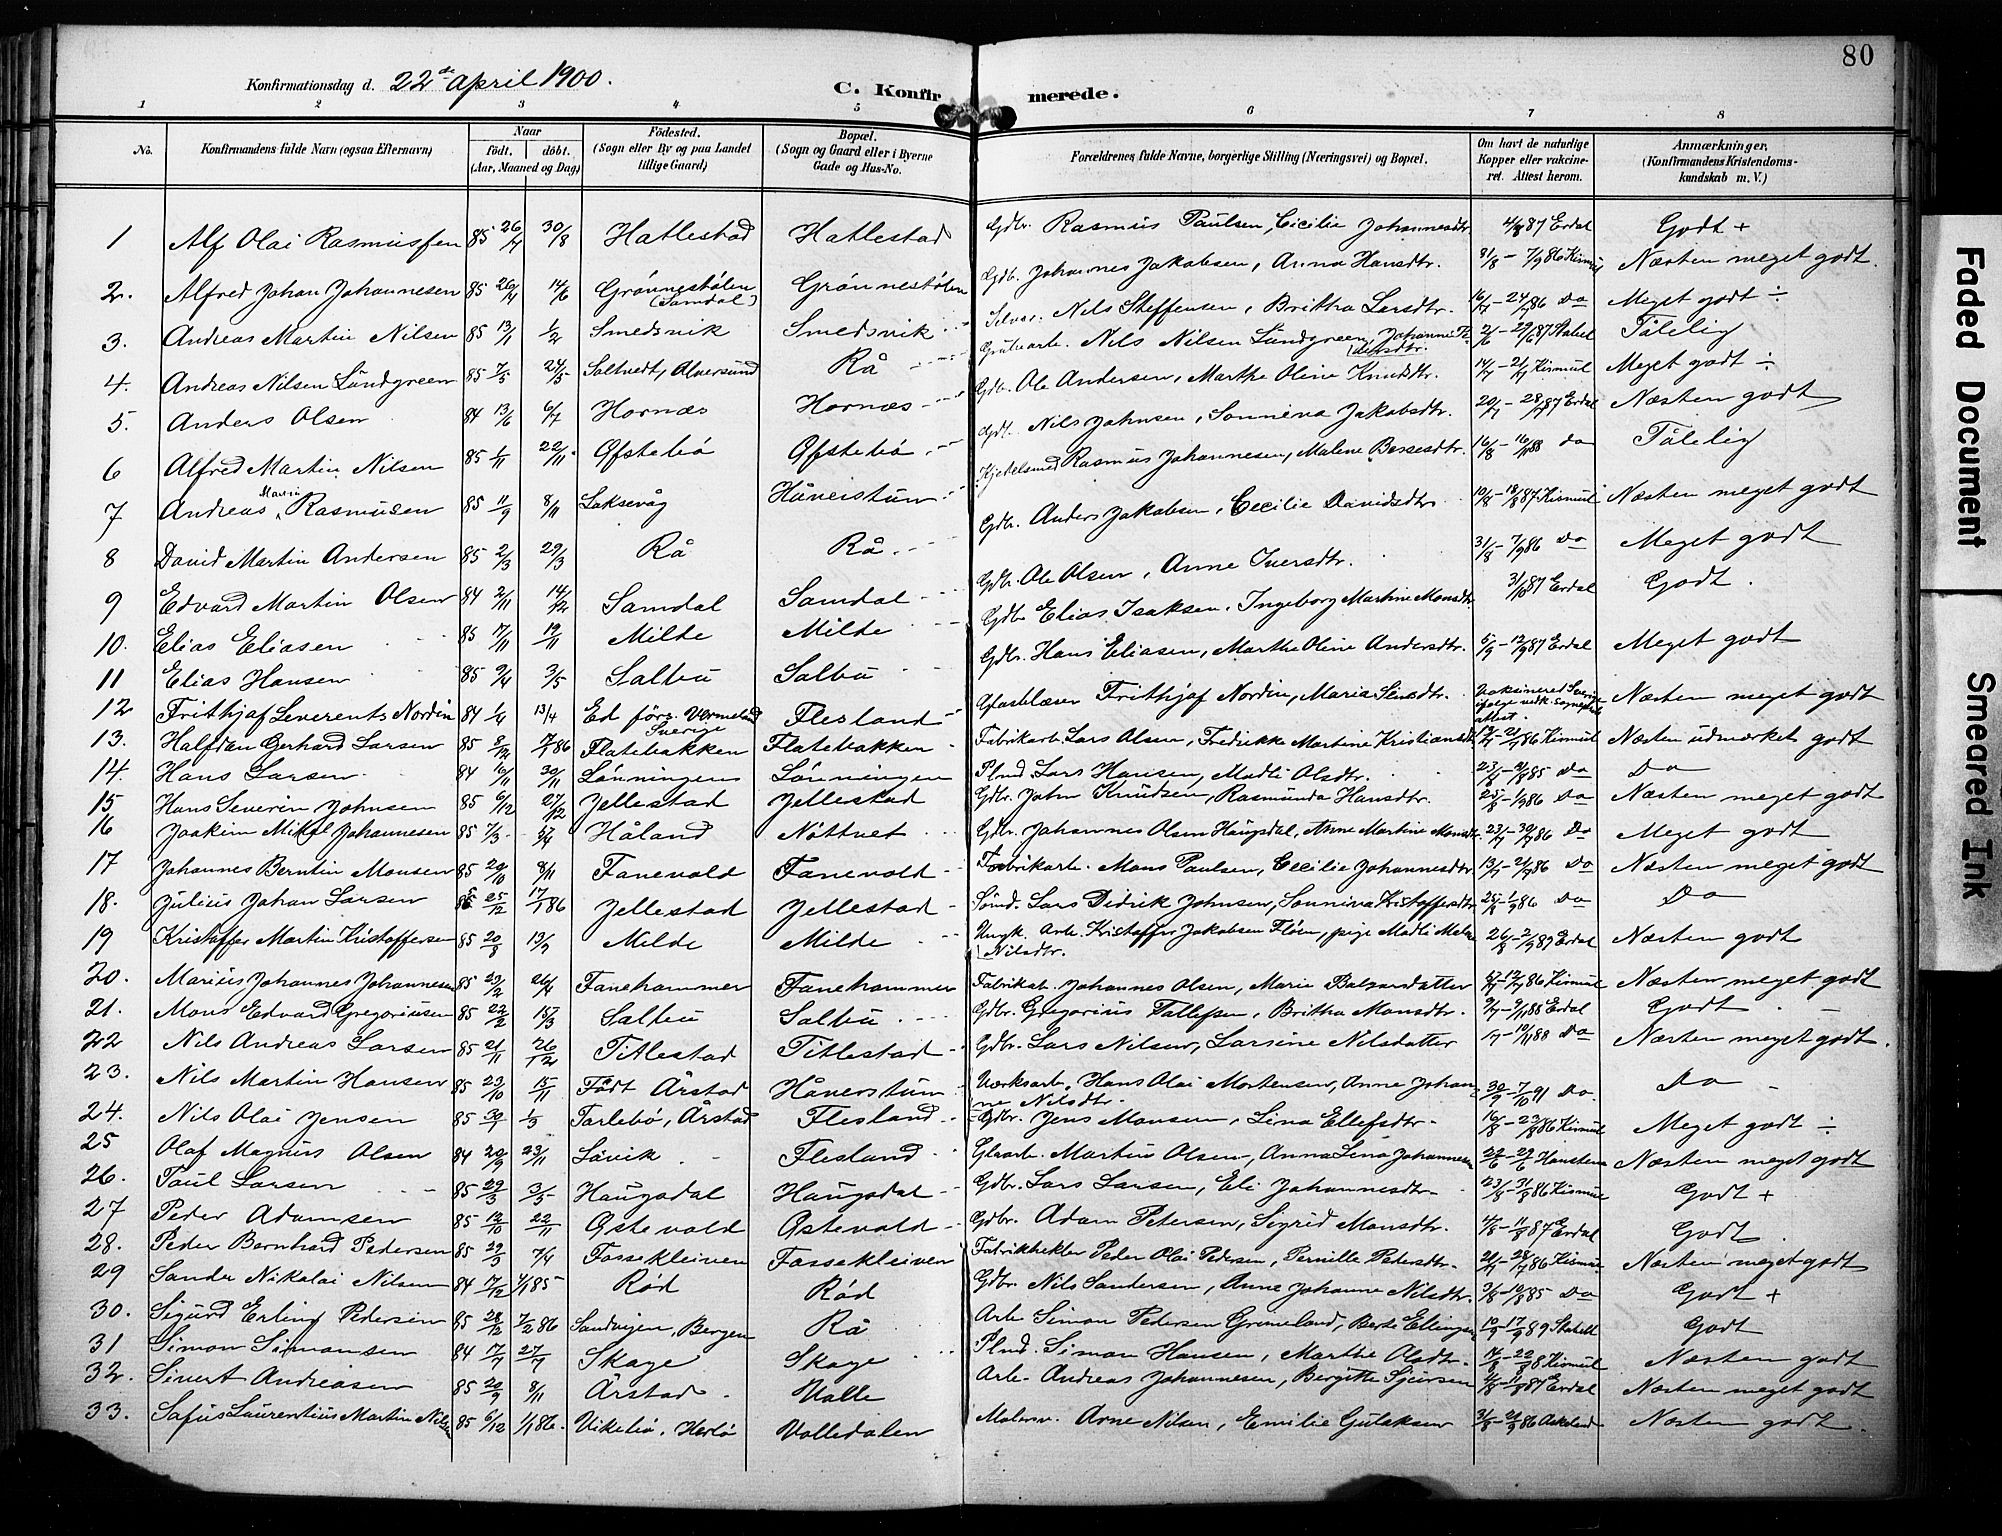 80
Konfirmationsdag d. 22de april 1900.
C. Konfirmerede.
1 2 3 4 5 6 7 8
No.
Konfirmandens fulde Navn (ogsaa Efternavn)
Naar
födt. döbt.
(Aar, Maaned og Dag)
Födested.
(Sogn eller By og paa Landet tillige Gaard)
Bopæl.
(Sogn og Gaard eller i Byerne Gade og Hus-No.
Forældrenes fulde Navne, borgerlige Stilling (Næringsvei) og Bopæl.
Om havt de naturlige Kopper eller vakcineret. Attest herom.
Anmærkninger.
(Konfirmandens Kristendomskundskab m. V.)
1 Alf Olai Rasmussen 85 26/7 30/8 Hatlestad Hatlestad Gdbr. Rasmus Paulsen, Cecilie Johannesdtr. 4/8 87 Erdal Godt +
2. Alfred Johan Johannesen 85 26/4 14/6 Grönnestölen (Samdal) Grönnestölen Gdb. Johannes Jakobsen, Anna Hansdtr. 31/8 - 7/9 86 Kismul Næsten meget godt.
3. Andreas Martin Nilsen 85 13/1 1/2 Smedsvik Smedsvik Selvei. Nils Steffensen, Brittha Larsdtr. 16/7 - 24/7 86 Do Meget godt ÷
4. Andreas Nilsen Lundgreen 85 7/5 24/5 Saltvedt, Alversund Rå Grubearb. Nils Nilsen Lundgreen, Johanne Pedersdtr. 21/6 - 29/6 87 Stabel Tålelig
5. Anders Olsen 84 13/6 6/7 Hornæs Hornæs Gdb. Ole Andersen, Marthe Oline Knudsdtr. 14/7 - 21/7 Kismul Meget godt ÷
6 Alfred Martin Nilsen 85 1/11 22/11 Öfstebö Öfstebö Gdb. Nils Johnsen, Sonneva Jakobsdtr. 20/7 - 28/7 87 Erdal Næsten godt
7 Andreas Martin Rasmusen 85 11/9 8/11 Laksevåg Håverstun Kjedelsmed Rasmus Johannesen, Malene Bossesdtr. 16/8 - 16/11 88 do Tålelig
8 David Martin Andersen 85 2/3 29/3 Rå Rå Gdb. Anders Jakobsen, Cecilie Davidsdtr 10/8 - 18/8 87 Kismul Næsten meget godt
9 Edvard Martin Olsen 84 2/11 14/12 Samdal Samdal Gdb. Ole Olsen, Anne Iversdtr. 31/8 - 7/9 86 Do Meget godt
10. Elias Eliasen 85 17/11 19/11 Milde Milde Gdb Elias Isaksen, Ingeborg Martine Monsdtr 3/10 87 Erdal Godt.
11 Elias Hansen 85 9/4 3/5 Salbu Salbu Gdbr. Hans Eliasen, Marthe Oline Andersdtr. 5/9 - 12/9 87 Erdal Meget godt
12 Frithjaf Leverents Nordin 84 1/4 13/4 Ed förs. Vermeland Sverige Flesland Frithjaf Nordin, Maria Næsten meget godt
13. Halfdan Gerhard Larsen 85 8/12 7/1 86 Flatebakken Flatebakken Fabrikarb. Lars Olsen, Fredrikke Martine Kristiansdtr. 14/7 - 21/7 86 Kismul Næsten udmærket godt
14. Hans Larsen 84 10/11 30/11 Lönningen Lönningen Plmd. Lars Hansen, Madli Olsdtr. 23/8 - 31/8 85 Do Do
15 Hans Severin Johnsen 85 6/12 27/12 Jellestad Jellestad Gdbr. John Knudsen, Rasmunda Hansdtr. 25/8 - 1/9 86 Do Næsten meget godt
16 Joakim Mikal Johannesen 85 7/3 5/4 Håland Nöttvet Gdbr. Johannes Olsen Haugsdal, Anne Martine Monsdtr. 23/7 - 30/7 86 Do Meget godt
17 Johannes Berntin Monsen 85 20/10 8/11 Fanevold Fanevold Fabrikarb. Mons Paulsen, Cecilie Johannesdtr 13/7 - 21/7 86 Do Næsten meget godt
18. Julius Johan Larsen 85 25/12 17/1 86 Jellestad Jellestad Lars Didrik Johnsen, Sonniva Kristoffersdtr 25/8 - 1/9 86 Do Do
19 Kristoffer Martin Kristoffersen 85 20/8 13/9 Milde Milde Ungk. Arb. Kristoffer Jakobsen Flöen, pige Madli Nilsdtr. 26/8 - 2/9 89 Erdal Næsten godt
20. Marius Johannes Johannesen 85 23/2 26/4 Fanehammer Fanehammer Fabrikarb. Johannes Olsen, Marie Balsarsdatter 5/7 - 12/7 86 Kismul Næsten meget godt
21. Mons Edvard Gregoriusen 85 22/2 15/3 Salbu Salbu Gdbr. Gregorius Tollefsen, Britha Monsdtr. 9/11 88 Erdal Godt
22 Nils Andreas Larsen 85 21/11 26/12 Titlestad Titlestad Gdbr. Lars Nilsen, Larsine Nilsdatter 10/11 88 Do Næsten meget godt.
23. Nils Martin Hansen 85 23/10 15/11 Födt Årstad Håverstun Værksarb. Hans Olai Mortensen, Anne Johanne Nilsdtr. 30/9 - 7/10 91 Do. Do
24. Nils Olai Jensen 85 30/1 1/3 Tarlebö, Årstad Flesland Gdbr. Jens Monsen, Lina Ellefsdtr. 16/8 - 23/8 86 Kismul Meget godt ÷
25 Olaf Magnus Olsen 84 20/9 23/11 Lövik Flesland Martin Olsen, Anna Lina Johannesen 22/6 - 29/6 Næsten meget godt
26. Paul Larsen 85 29/3 3/5 Haugsdal Haugsdal Gdbr. Lars Larsen, Eli Johannesdtr. 23/8 - 31/8 86 Kismul Godt +
27 Peder Adamsen 85 12/10 22/11 Östevold Östevold Gdbr. Adam Petersen, Sigrid Monsdtr. 4/8 - 11/8 87 Erdal Godt.
28. Peder Bernhard Pedersen 85 29/3 7/4 Fossekleiven Fossekleiven Peder Olai Pedersen, Pernille Pedersdtr. 20/7 - 28/7 86 Kismul Næsten meget godt
29 Sander Nikolai Nilsen 84 17/12 1/1 85 Röd Röd Gdbr. Nils Sandersen, Anna Johanne Nilsdtr. 3/8 - 10/8 85 Do Godt +
30. Sigurd Erling Pedersen 85 28/12 7/2 86 Sandvigen, Bergen Rå Arb. Simon Pedersen Grimeland, Berte Ellingsen 10/9 - 17/9 89 Godt
31 Simon Simonsen 84 17/7 27/7 Skage Skage Plmd. Simon Hansen, Marthe Olsdtr. Kismul Næsten godt
32. Sivert Andreasen 85 20/9 8/11 Årstad Valle Arb. Andreas Johannesen, Bergitte Sjursen 4/8 - 11/8 87 Erdal Næsten meget godt
33. Laurentius Martin 85 6/12 1/1 86 Vikebö, Herlö Valledalen Malersv. Arne Nilsen, Emilie Gulaksen 31/8 - 21/9 86 Askeland Næsten godt.
Faded Document
Smeared Ink